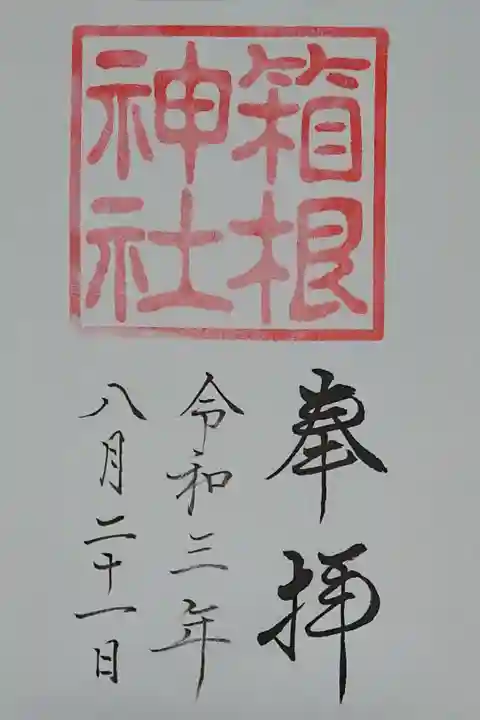 箱根
神社
奉拝
令和三年
八月二十一日